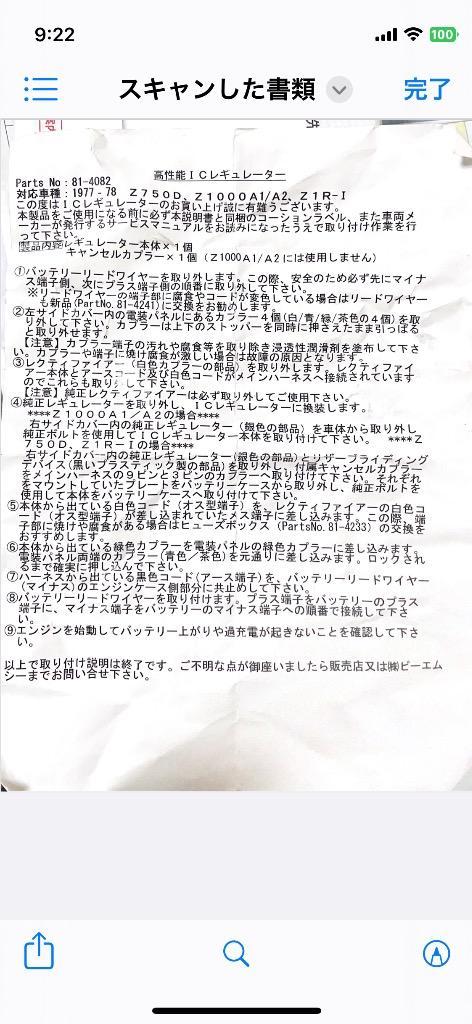 9:22
100
スキャンした書類
完了
高性能ICレギュレーター
Parts No : 81-4082
対応車種：1977 - 78 Z750D、Z1000A1/A2、Z1R-I
この度はICレギュレーターのお買い上げ誠に有難うございます。
本製品をご使用になる前に必ず本説明書と同梱のコーションラベル、また車両メ
ーカーが発行するサービスマニュアルをお読みになったうえで取り付け作業を行
って下さい。
製品内容 レギュレーター本体×1個
キャンセルカプラー×1個（Z1000A1/A2には使用しません）
①バッテリーリードワイヤーを取り外します。この際、安全のため必ず先にマイナ
ス端子側、次にプラス端子側の順番に取り外して下さい。
※リードワイヤーの端子部に腐食やコードが変色している場合はリードワイヤー
も新品(PartNo. 81-4241)に交換をお勧めします。
②左サイドカバー内の電装パネルにあるカプラー4個(白/青/緑/茶色の4個)を取
り外して下さい。カプラーは上下のストッパーを同時に押さえたまま引っぱる
と取り外せます。
【注意】カプラー端子の汚れや腐食等を取り除き浸透性潤滑剤を塗布して下さ
い。カプラーや端子に焼け腐食が激しい場合は故障の原因となります。
③レクティファイアー（白色カプラーの部品）を取り外します。レクティファイ
アー本体とアースコード及び白色コードがメインハーネスへ接続されています
のでこれらも取り して下さい。
【注意】純正レクティファイアーは必ず取り外してご使用下さい。
④純正レギュレーターを取り外し、ICレギュレーターに換装します。
****Z1000A1/A2の場合****
右サイドカバー内の純正レギュレーター（銀色の部品）を車体から取り外し
純正ボルトを使用してICレギュレーター本体を取り付けて下さい。 ****Z
750D、Z1R-Iの場合****
右サイドカバー内の純正レギュレーター(銀色の部品)とリザーブライティング
デバイス(黒いプラスティック製の部品)を取り外し、付属キャンセルカプラー
をメインハーネスの9ピンと3ピンのカプラーへ取り付けて下さい。それぞれ
をマウントしていたプレートをバッテリーケースから取り外し、純正ボルトを
使用して本体をバッテリーケースへ取り付けて下さい。
⑤本体から出ている白色コード（オス型端子）を、レクティファイアーの白色コ
ード（オス型端子）が差し込まれていたメス端子に差し込みます。この際、端
子部に焼けや腐食がある場合はヒューズボックス（PartsNo. 81-4233）の交換を
おすすめします。
⑥本体から出ている緑色カプラーを電装パネルの緑色カプラーに差し込みます。
電装パネル両端のカプラー(青色／茶色)を元通りに差し込みます。ロックされ
るまで確実に押し込んで下さい。
⑦ハーネスから出ている黒色コード(アース端子)を、バッテリーリードワイヤー
(マイナス)のエンジンケース側部分に共止めして下さい。
⑧バッテリーリードワイヤーを取り付けます。プラス端子をバッテリーのプラス
端子に、マイナス端子をバッテリーのマイナス端子への順番で接続して下さ
い。
⑨エンジンを始動してバッテリー上がりや過充電が起きないことを確認して下さ
い。
以上で取り付け説明は終了です。ご不明な点が御座いましたら販売店又は㈱ピーエム
シーまでお問い合せ下さい。